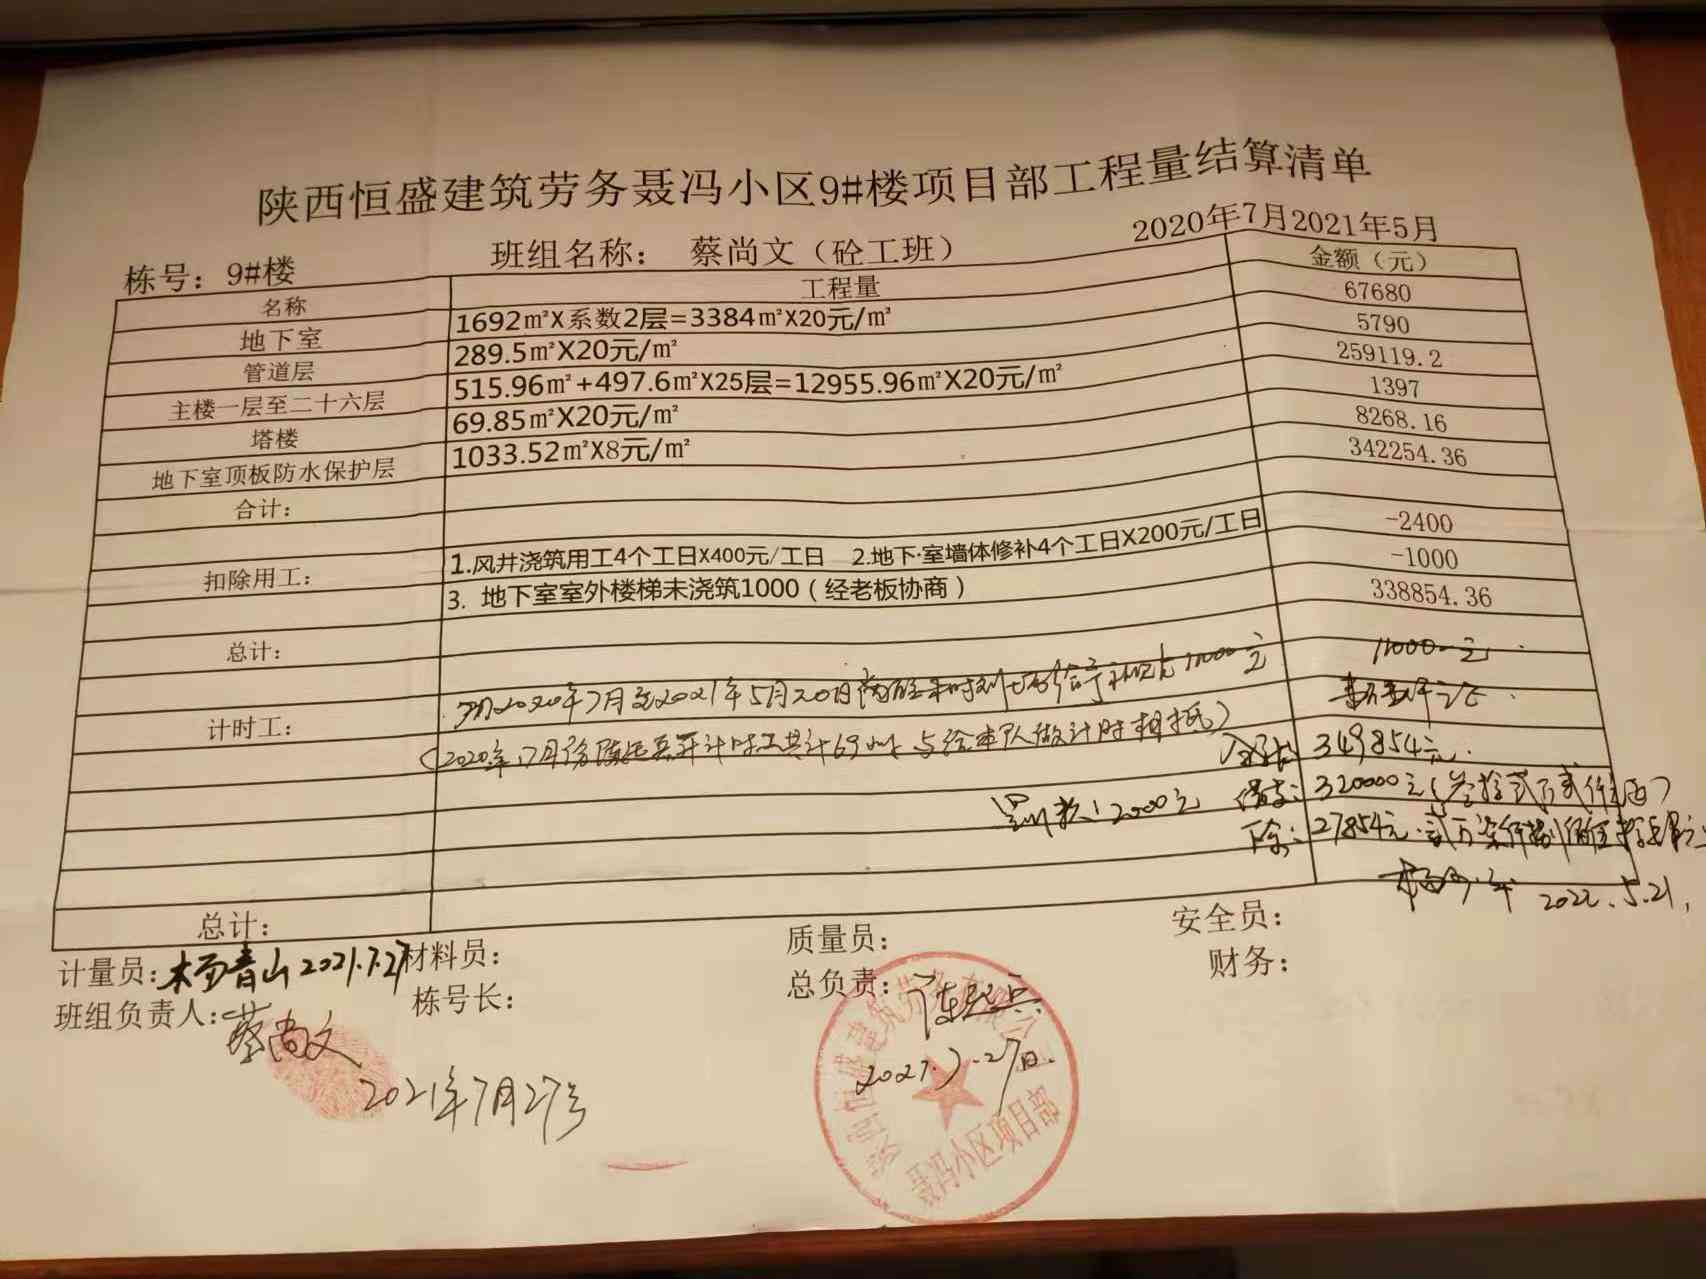 陕西恒盛建筑劳务聂冯小区9#楼项目部工程量结算清单
栋号：9#楼 班组名称： 蔡尚文（砼工班） 2020年7月2021年5月
名称 工程量 金额（元）
地下室 1692㎡X系数2层=3384㎡X20元/㎡ 67680
管道层 289.5㎡X20元/㎡ 5790
主楼一层至二十六层 515.96㎡+497.6㎡X25层=12955.96㎡X20元/㎡ 259119.2
塔楼 69.85㎡X20元/㎡ 1397
地下室顶板防水保护层 1033.52㎡X8元/㎡ 8268.16
合计： 342254.36
扣除用工： 1.风井浇筑用工4个工日X400元/工日 2.地下·室墙体修补4个工日X200元/工日 -2400
3. 地下室室外楼梯未浇筑1000（经老板协商） -1000
总计： 338854.36
计时工： 2020年7月至2021年5月20日 11000元 11000元
（2020年7月份 计时工共计69 与给本队做计时相抵）
349854元.
2000元 借支：320000元
下余：27854元.
2022.5.21.
总计：
计量员： 杨青山 2021.7.27 材料员： 质量员： 安全员：
班组负责人： 蔡尚文 栋号长： 总负责： 财务：
2021年7月27号
2021.7.27日.
聂冯小区项目部